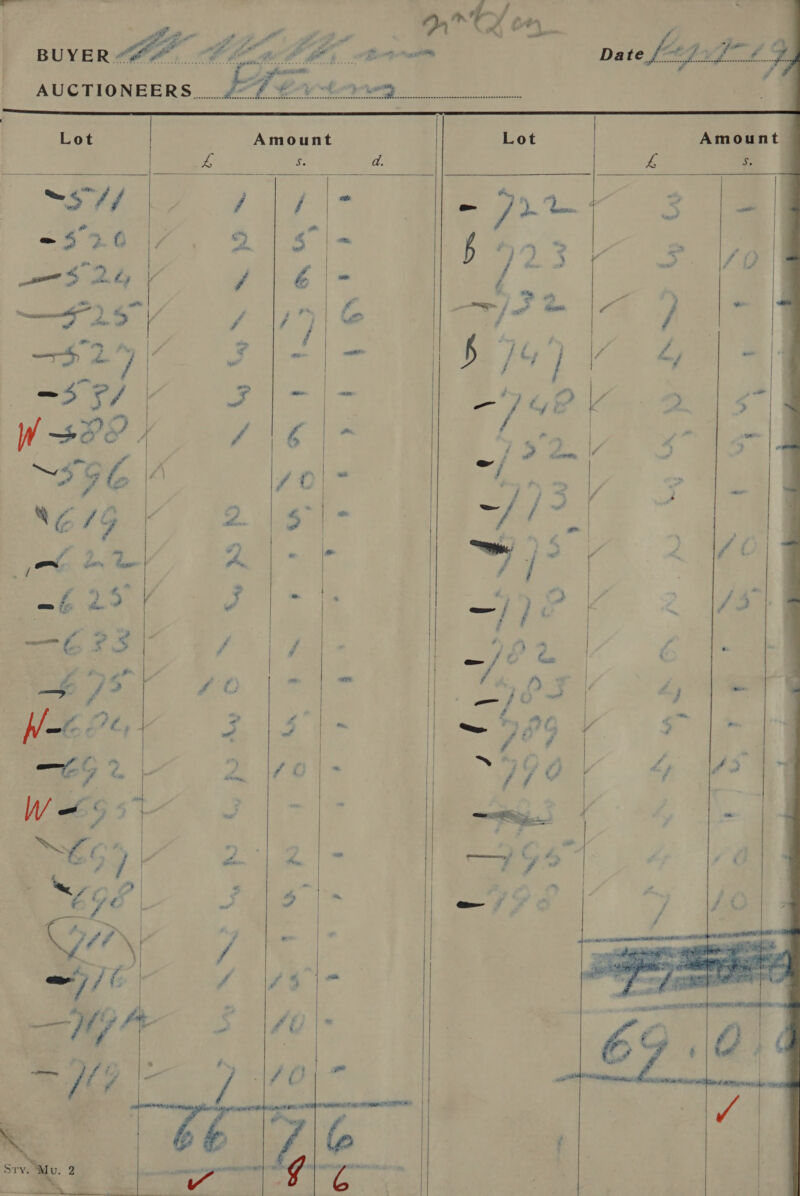 BUYER
Date Sept 19
AUCTIONEERS Stevens
Lot Amount Lot Amount
£ s. d. £ s.
511 1 1 -
520 2 5 -
524 1 6 -
525 1 17 6
527 3 - -
531 3 - -
W 588 1 6 -
596 10 -
619 2 5 -
622 2 - -
625 3 - -
633 1 1 -
675 10 - -
W 684 3 5 -
692 2 10 -
W 695 3 - -
697 2 2 -
698 3 5 -
711 7 - -
716 1 15 -
717A 3 10 -
719 7 10 -
66 7 6
8 6
Srv. Mu. 2
722 3 -
$ 723 3 10 -
732 7 - -
$ 747 4 -
748 2 5
752 5 5
773 3 -
775 2 10
778 2 15
782 6 -
783 4 -
789 5 -
790 4 15
4 -
795 4 10
798 7 10
69.0.0